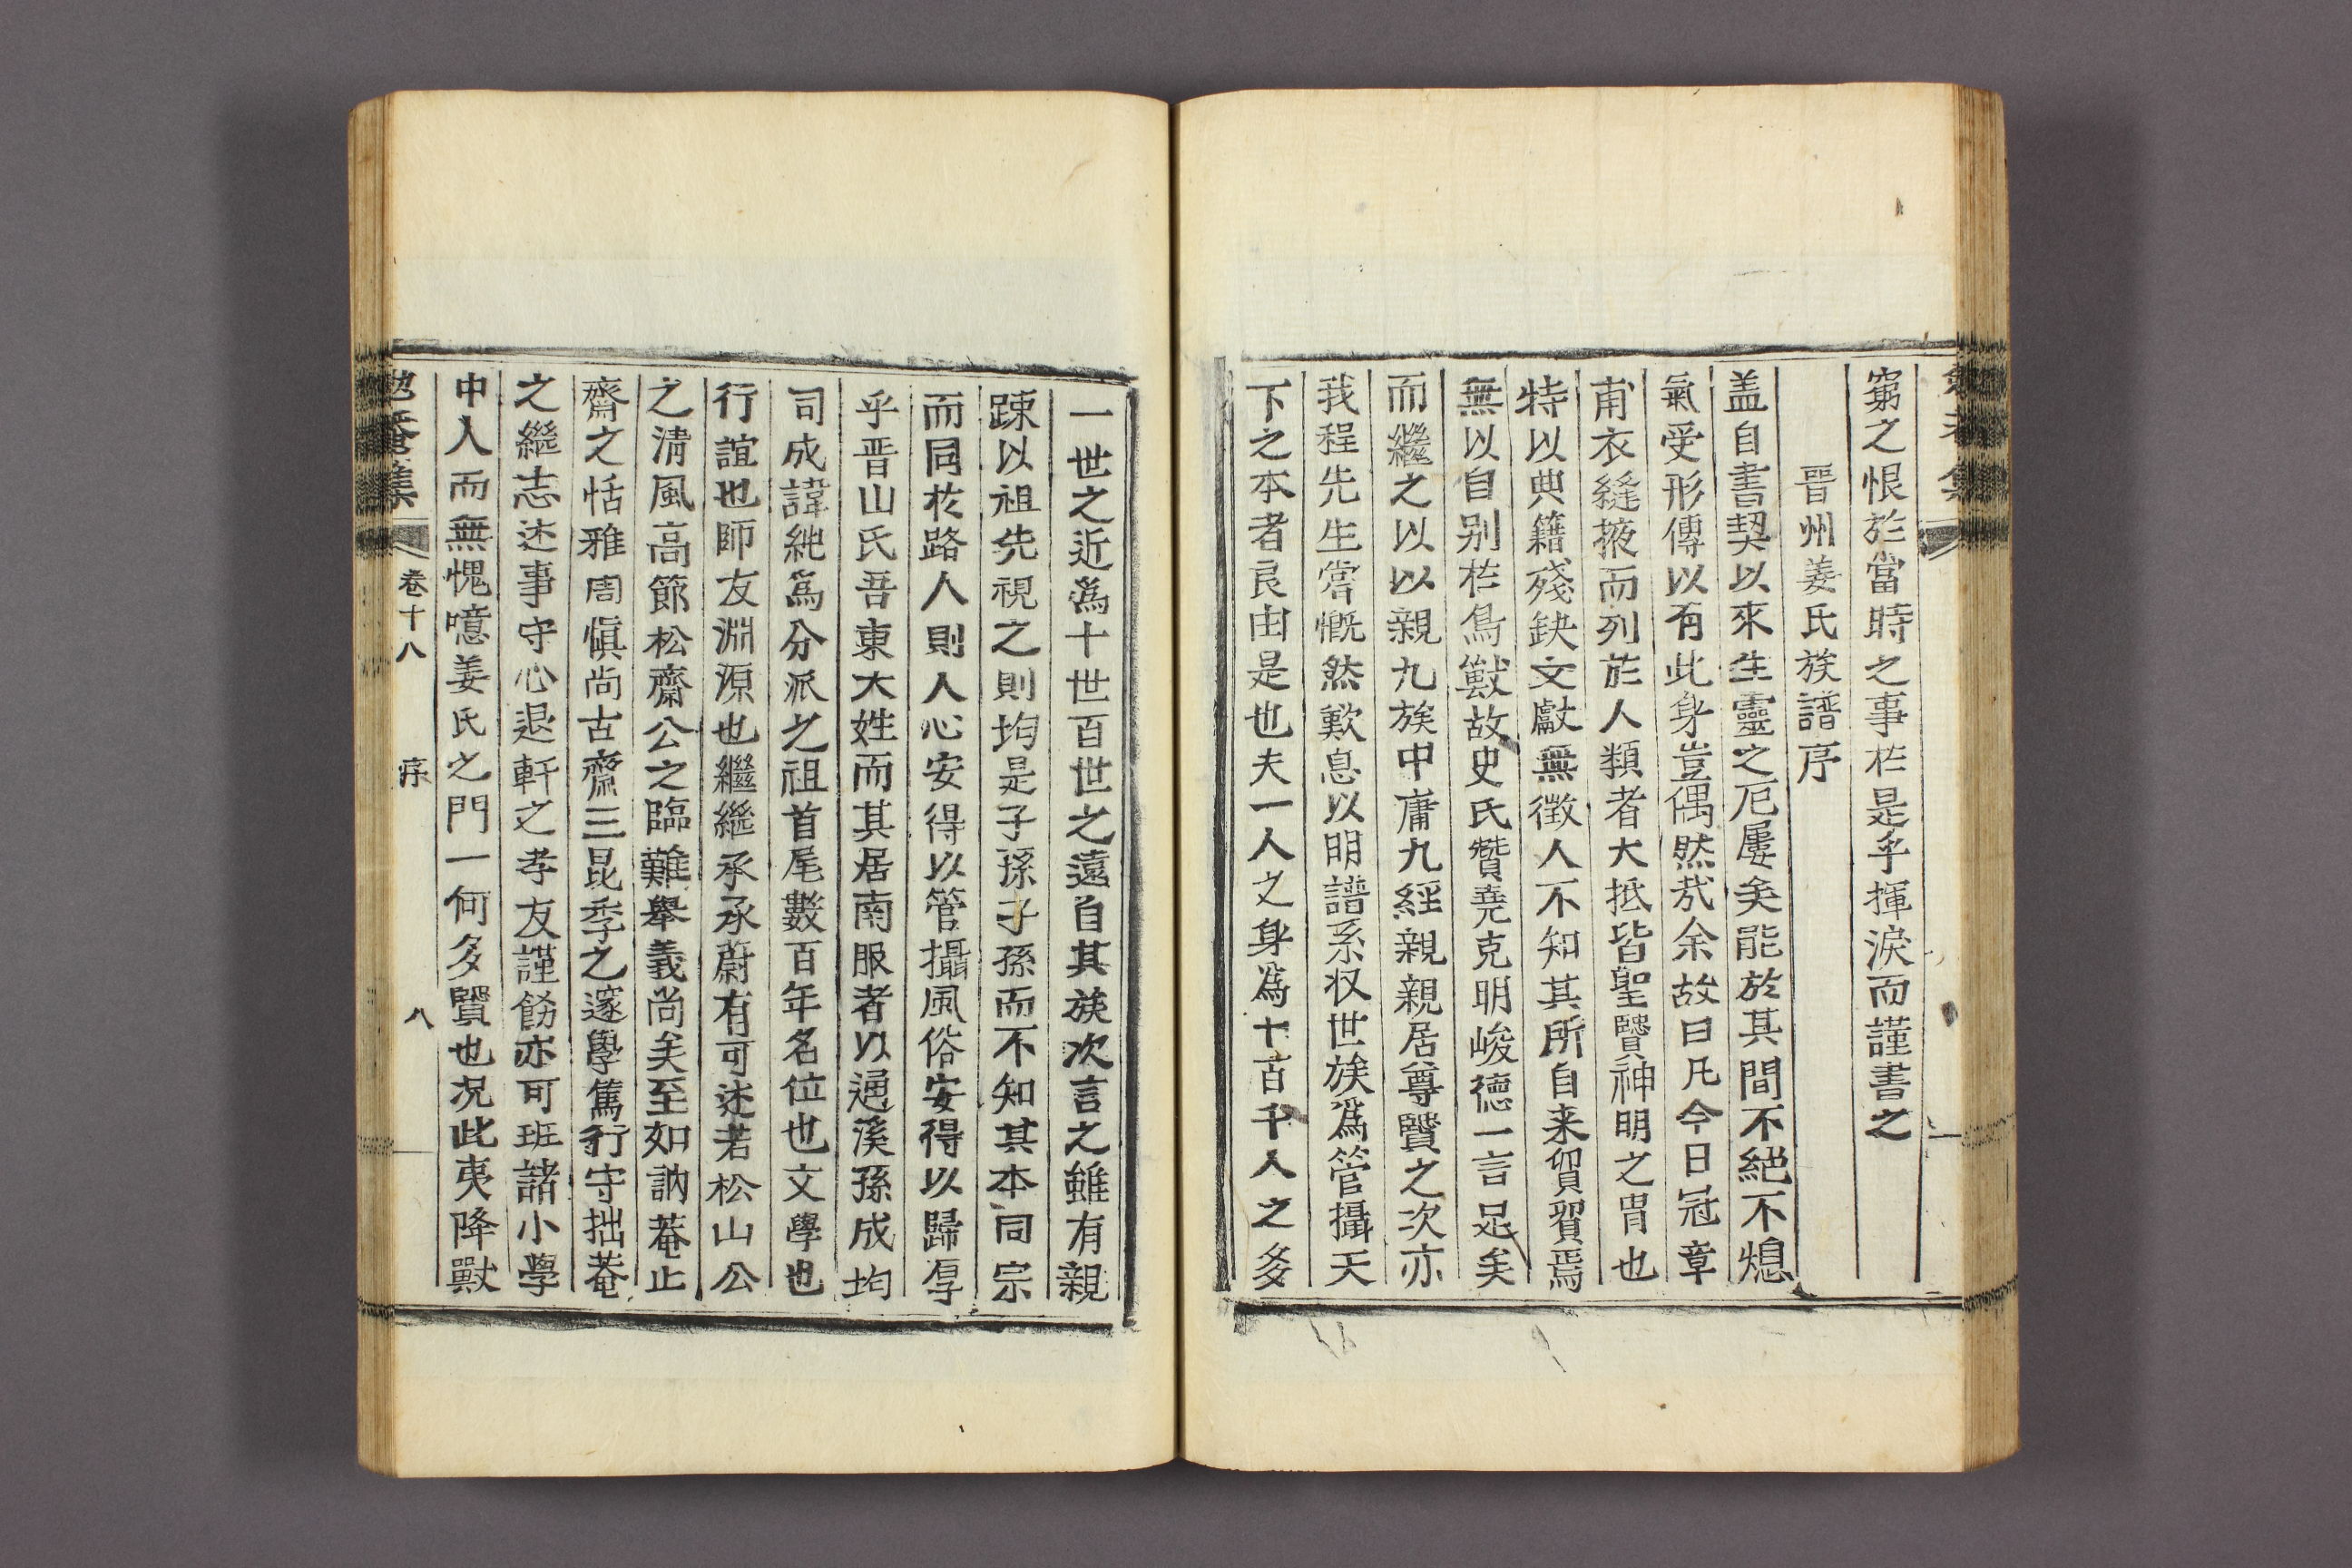 窮之恨於當時之事於是乎揮淚而謹書之
晋州姜氏族譜序
盖自書契以來生靈之厄屢矣能於其間不絕不熄
氣受形傳以有此身豈偶然㦲余故曰凡今日冠章
甫衣縫掖而列於人類者大抵皆聖賢神明之胄也
特以典籍殘缺文獻無徵人不知其所自来貿貿焉
無以自别於鳥獸故史氏贊堯克明峻德一言足矣
而繼之以以親九族中庸九經親親居尊賢之次亦
我程先生嘗慨然歎息以明譜系収世族爲管攝天
下之本者良由是也夫一人之身爲十百千人之多
一世之近爲十世百世之遠自其族次言之雖有親
踈以祖先視之則均是子孫子孫而不知其本同宗
而同於路人則人心安得以管攝風俗安得以歸厚
乎晋山氏吾東大姓而其居南服者以通溪孫成均
司成諱紞爲分派之祖首尾數百年名位也文學也
行誼也師友淵源也繼繼承承蔚有可述若松山公
之淸風高節松齋公之臨難舉義尚矣至如訥菴止
齋之恬雅周愼尚古齋三昆季之邃學篤行守拙菴
之繼志述事守心退軒之孝友謹飭亦可班諸小學
中人而無愧噫姜氏之門一何多賢也况此夷降獸
勉菴集
卷十八
序
八